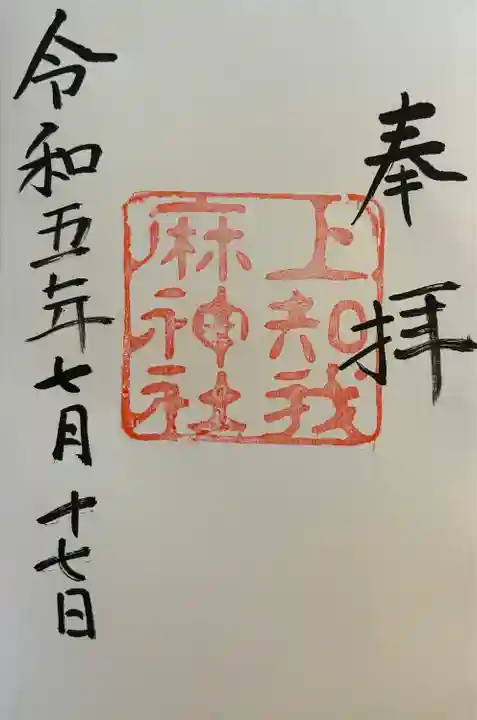 奉拝
上知我
麻神社
令和五年七月十七日